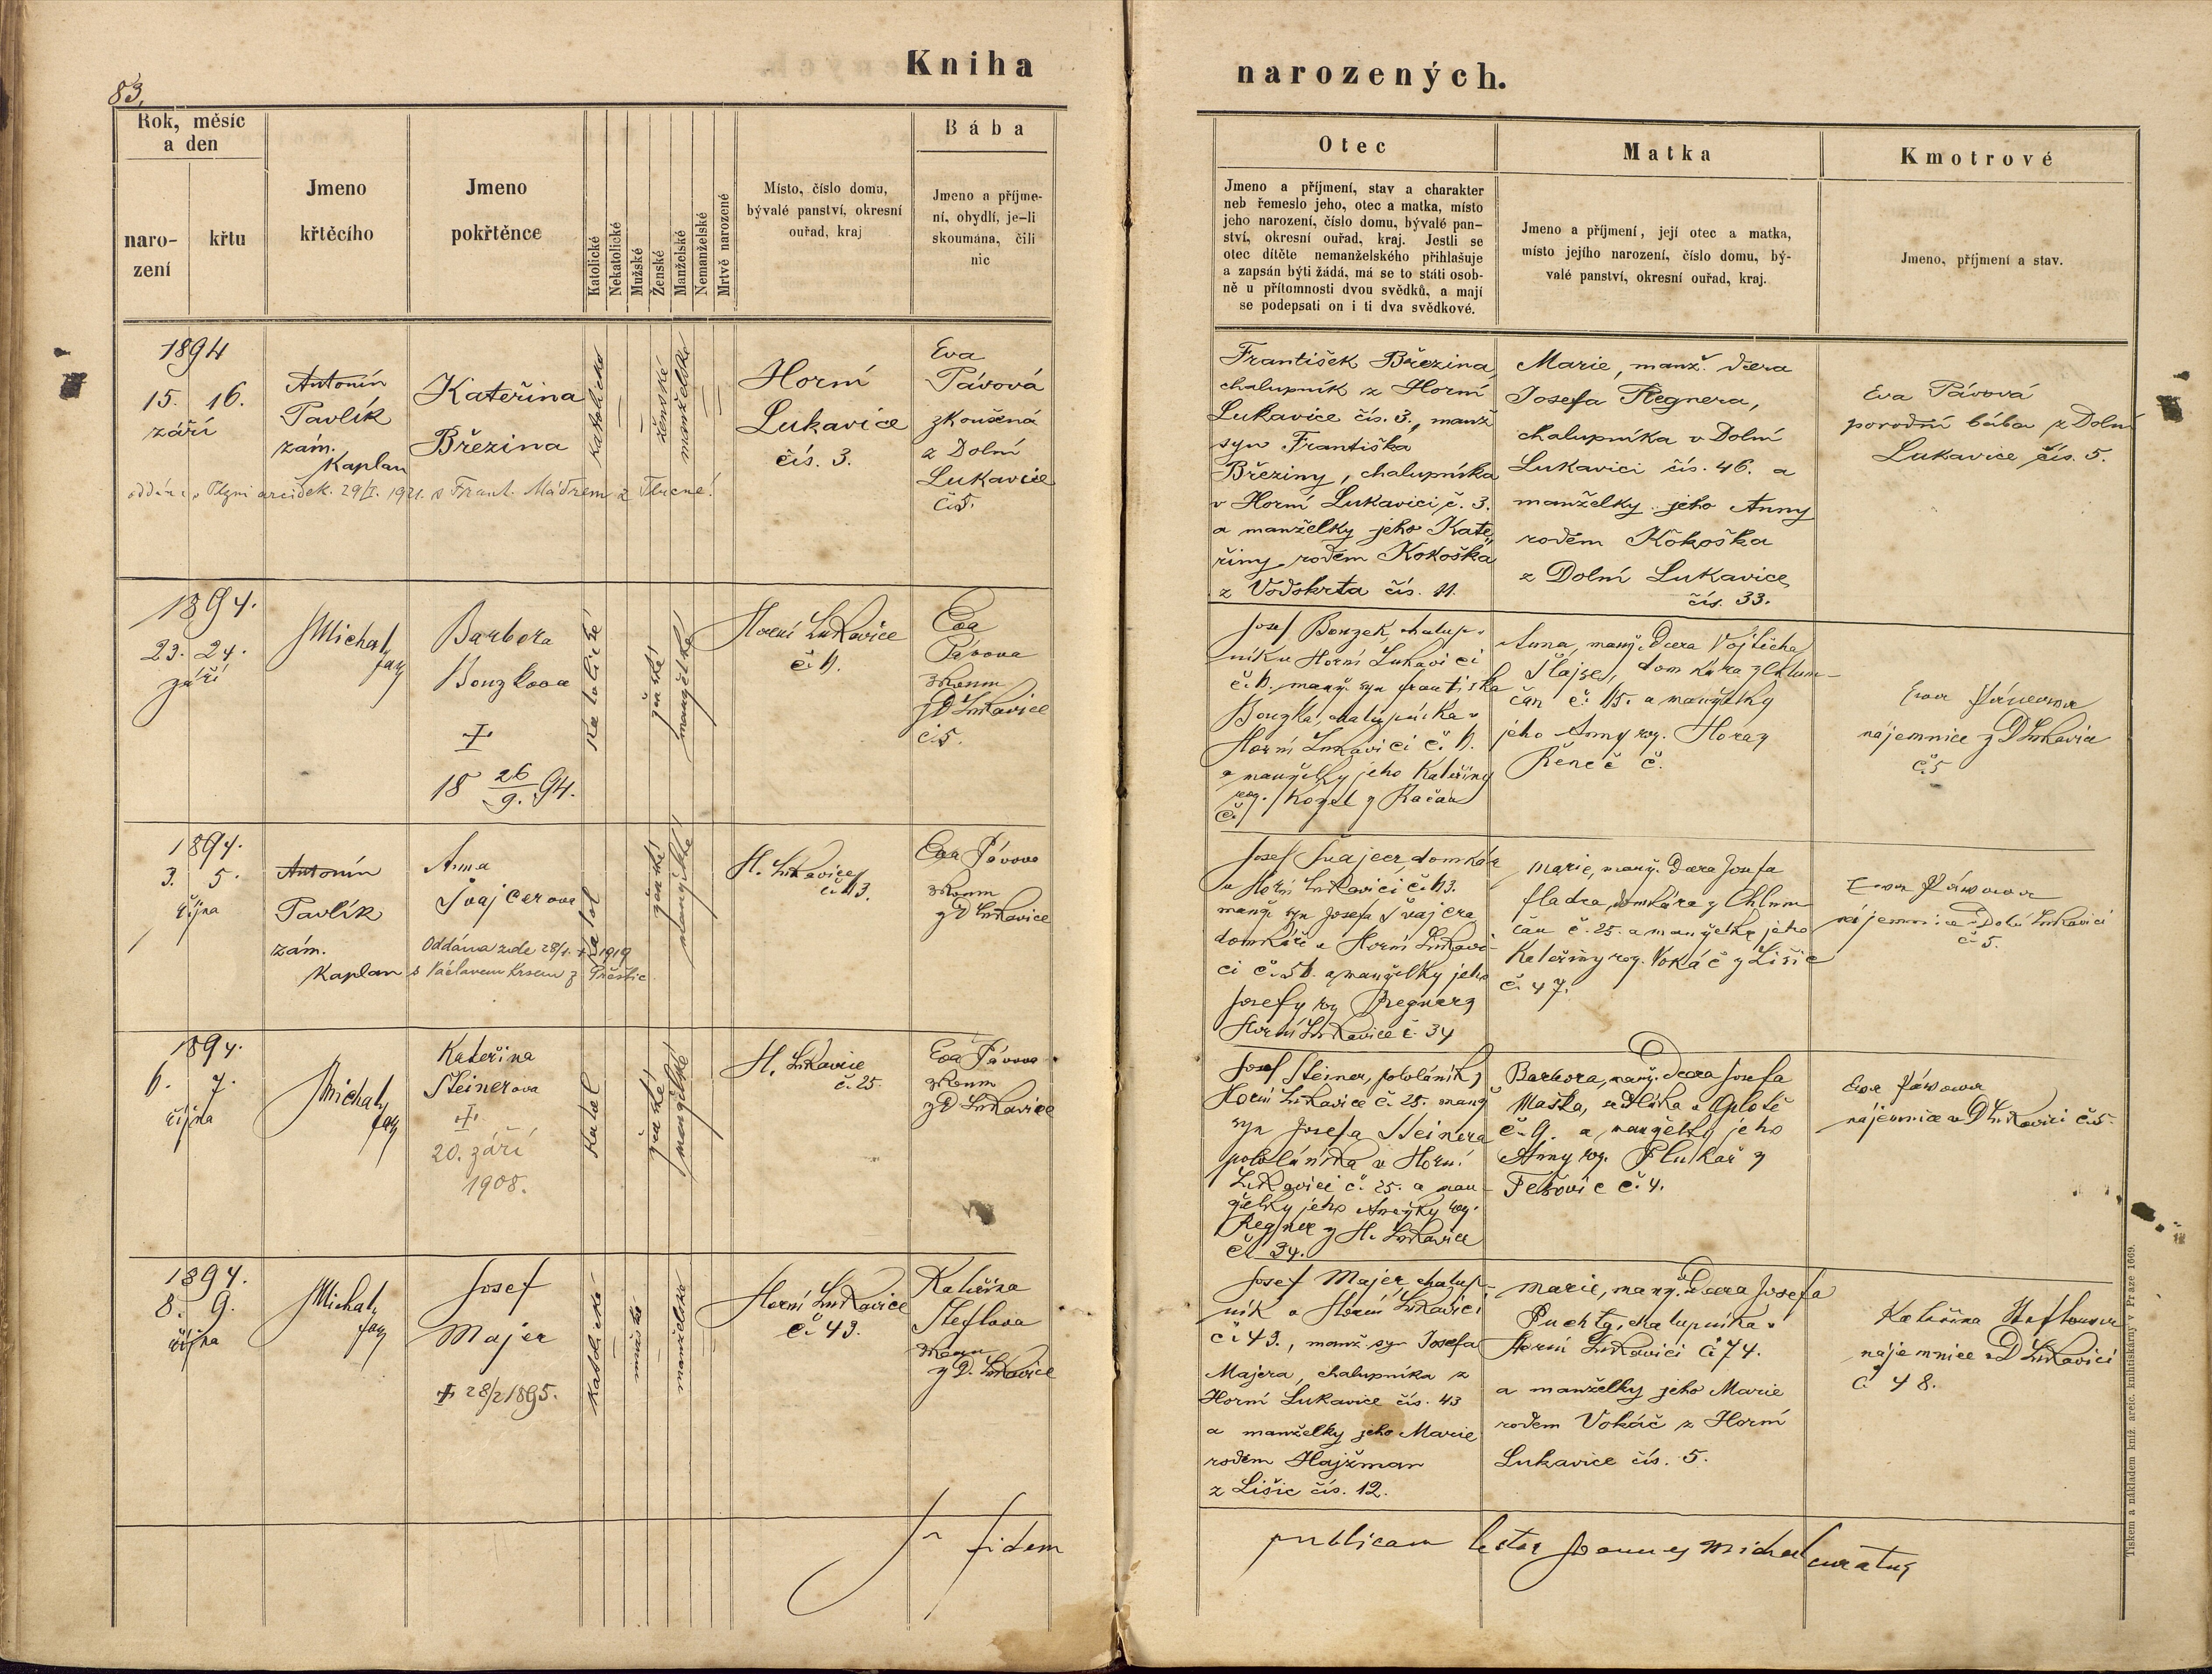 83.
Kniha
narozených.
Rok, měsíc
a den
naro-
zení
křtu
Jmeno
křtěcího
Jmeno
pokřtěnce
Katolické
Nekatolické
Mužské
Ženské
Manželské
Nemanželské
Mrtvě narozené
Místo, číslo domu,
bývalé panství, okresní
ouřad, kraj
Bába
Jmeno a příjme-
ní, obydlí, je-li
skoumána, čili
nic
Otec
Jmeno a příjmení, stav a charakter
neb řemeslo jeho, otec a matka, místo
jeho narození, číslo domu, bývalé pan-
ství, okresní ouřad, kraj. Jestli se
otec dítěte nemanželského přihlašuje
a zapsán býti žádá, má se to státi osob-
ně u přítomnosti dvou svědků, a mají
se podepsati on i ti dva svědkové.
Matka
Jmeno a příjmení, její otec a matka,
místo jejího narození, číslo domu, bý-
valé panství, okresní ouřad, kraj.
Kmotrové
Jmeno, příjmení a stav.
1894
15. 16.
září
Antonín
Pavlík
zám.
Kaplan
Kateřina
Březina
katolické
ženské
manželské
Horní
Lukavice
čís. 3.
Eva
Pávová
zkoušená
z Dolní
Lukavice
č. 5.
29/I. 1921. s Frant.
František Březina,
chalupník z Horní
Lukavice čís. 3., manž
syn Františka
Březiny, chalupníka
v Horní Lukavici č. 3.
a manželky jeho Kate„
řiny rodem Kokoška
z Vodokrta čís. 11.
Marie, manž. dcera
Josefa Regnera,
chalupníka v Dolní
Lukavici čís. 46. a
manželky jeho Anny
rodem Kokoška
z Dolní Lukavice
čís. 33.
Eva Pávová
porodní bába z Dolní
Lukavice čís. 5.
1894.
23. 24.
září
Michal
Barbora
Bouzkova
†
18 26/9. 94.
Katolické
ženské
manželské
Horní Lukavice
Eva
Pávova
zkoum
z D Lukavice
č. 5.
Josef Bouzek, chalup-
ník v Horní Lukavici
manž. syn Františka
Bouzka, chalupníka v
Horní Lukavici
a manželky jeho Kateřiny
roz. Kozel z Račan
č.
Anna, manž. dcera Vojtěcha
domkáře z Chlum-
čan č. 115. a manželky
jeho Anny roz. Hora z
Řeneč č.
Eva Pávova
nájemnice z D Lukavice
č. 5
1894.
3. 5.
října
Antonín
Pavlík
zám.
Kaplan
Anna
Švajcerova
Oddána zde
1919
s Václavem Krsem z Přeštic
Katol
ženské
manželské
H. Lukavice
Eva Pávova
zkoum
z D Lukavice
Josef Švajcer, domkář
v Horní Lukavici
manž. syn Josefa Švajcra,
domkáře v Horní Lukavi-
ci a manželky jeho
Josefy roz Regner z
Horní Lukavice č. 34
Marie, manž. dcera Josefa
Fladra, domkáře z Chlum-
čan č. 25. a manželky jeho
Kateřiny roz. Vokáč z Lišic
č. 47.
Eva Pávova
nájemnice v Dolní Lukavici
č. 5.
1894.
6. 7.
října
Michal
Kateřina
Steinerova
†
20. září
1908.
Katol
ženské
manželské
H. Lukavice
č. 25.
Eva Pávova
zkoum
z D Lukavice
Josef Steiner, pololáník z
Horní Lukavice č. 25. manž
syn Josefa Steinera
pololáníka v Horní
Lukavici č. 25. a man-
želky jeho Anežky roz.
Regner z H. Lukavice
č. 34.
Barbora, manž. dcera Josefa
Maška, sedláka v Oplotě
č. 9. a manželky jeho
Anny roz.
č. 4.
Eva Pávova
nájemnice v D Lukavici č. 5.
1894.
8. 9.
října
Michal
Josef
Majer
† 28/2 1895.
katolické
mužské
manželské
Horní Lukavice
č. 43.
Kateřina
Steflova
zkoum
z D. Lukavice
Josef Majer, chalup-
ník v Horní Lukavici
č. 43., manž. syn Josefa
Majera, chalupníka z
Horní Lukavice čís. 43
a manželky jeho Marie
rodem Hajžman
z Lišic čís. 12.
Marie, manž. dcera Josefa
Puchty, chalupníka v
Horní Lukavici č. 74.
a manželky jeho Marie
rodem Vokáč z Horní
Lukavice čís. 5.
Kateřina Steflova
nájemnice v D Lukavici
č. 48.
In fidem
publicam testor Joannes Michal curatus
Tiskem a nákladem kníž. arcib. knihtiskárny v Praze 1669.